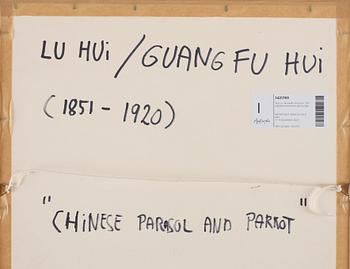 LU HUi / GUANG FU HUi
(1851 - 1920)
"CHiNESE PARASOL AND PARROT"